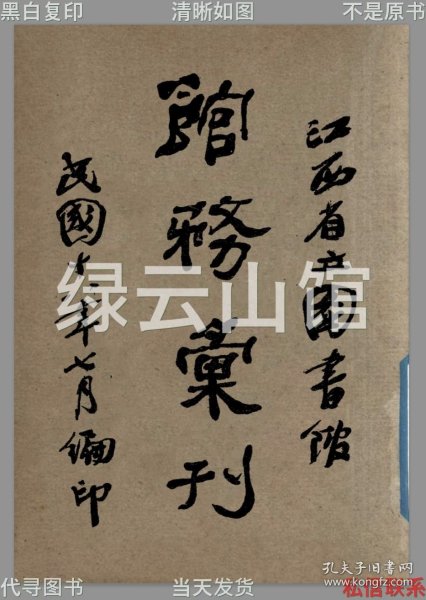 黑白复印
清晰如图
不是原书
江西省立圖書館
館務彙刊
民國年七月編印
绿云山馆
孔夫子旧书网
www.kongfz.com
代寻图书
当天发货
私信联系